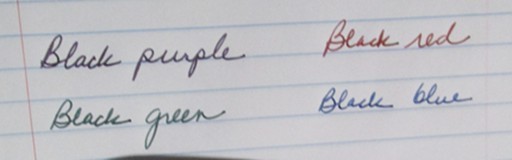 Black purple
Black red
Black green
Black blue